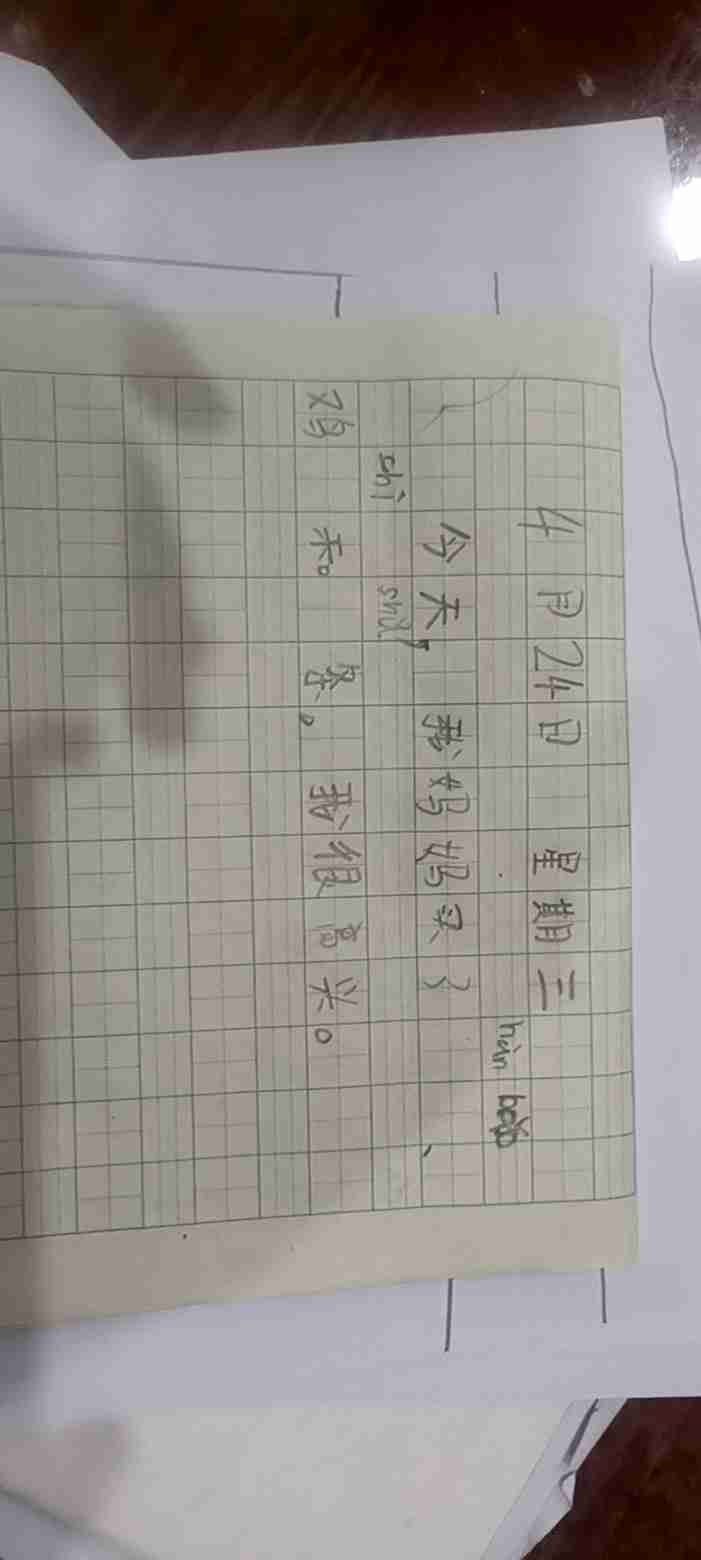 4月24日 星期三
hàn bǎo
今天，我妈妈买了 、
shì shǔ
鸡 和 条。我很高兴。